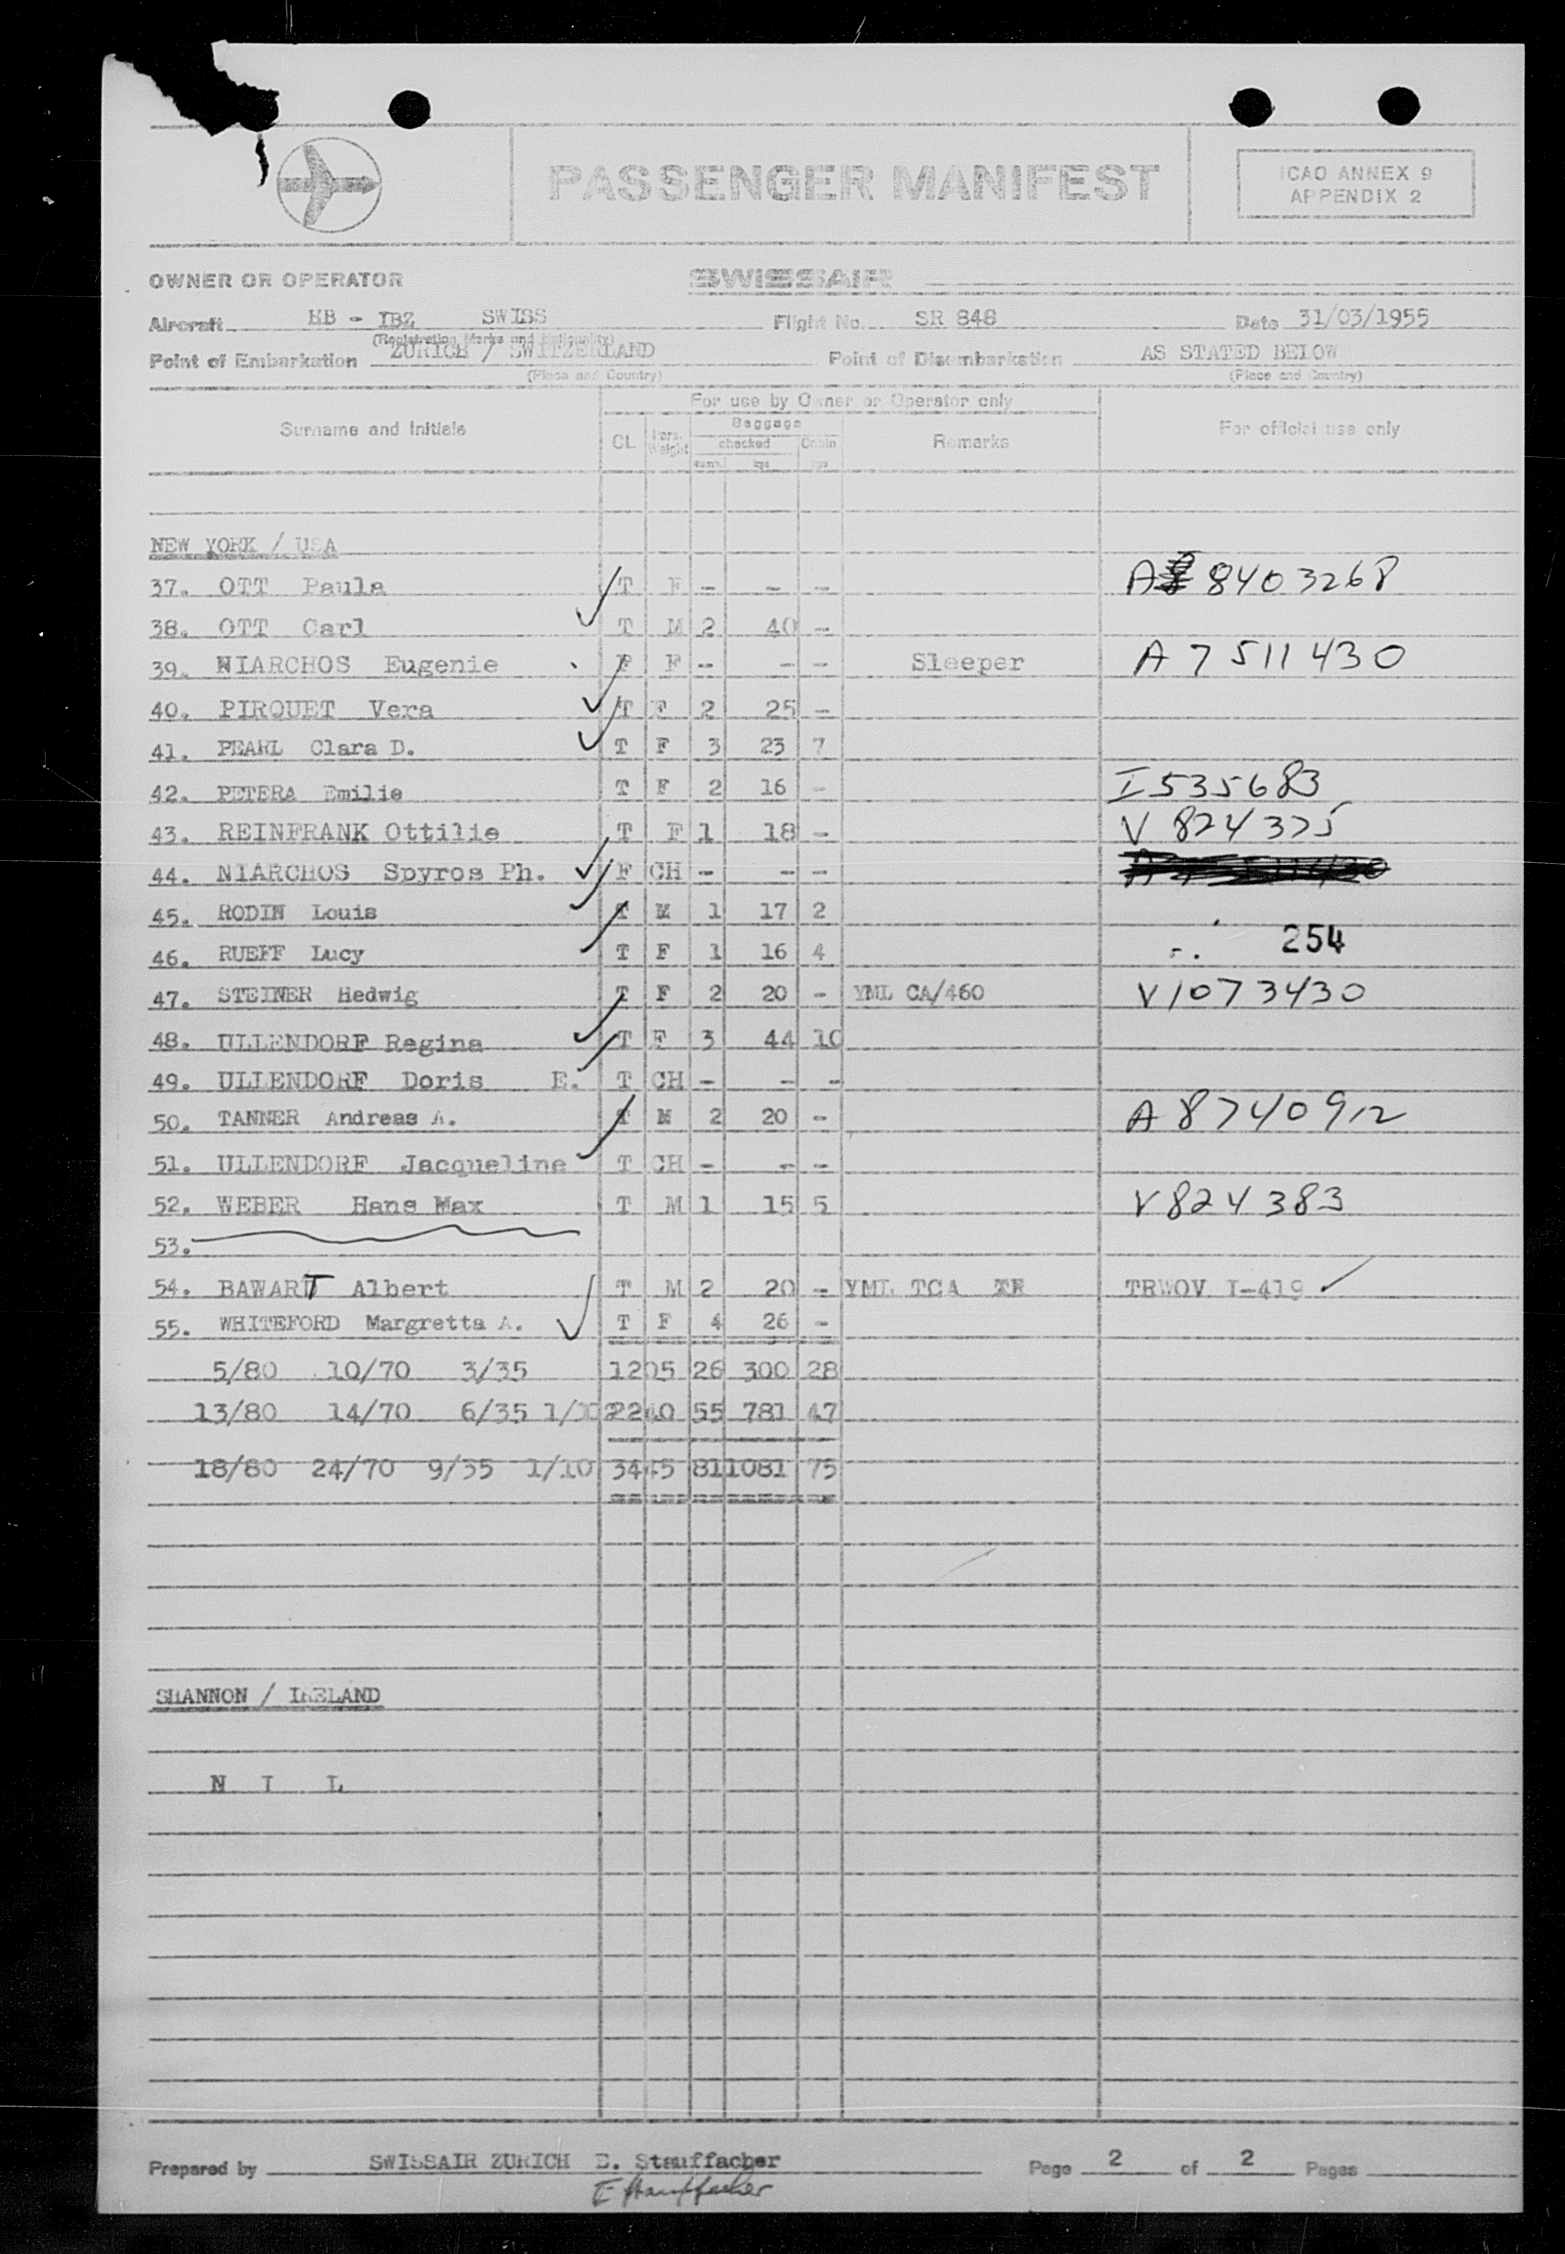 PASSENGER MANIFEST
ICAO ANNEX 9
APPENDIX 2
OWNER OR OPERATOR SWISSAIR
Aircraft HB - IBZ SWISS Flight No. SR 848 Date 31/03/1955
(Registration Marks and Nationality)
Point of Embarkation ZURICH / SWITZERLAND Point of Disembarkation AS STATED BELOW
(Place and Country) (Place and Country)
For use by Owner or Operator only
Surname and Initials CL Pers. Weight Baggage checked numb. kgs Cabin kgs Remarks For official use only
NEW YORK / USA
37. OTT Paula T F - - - A 8403268
38. OTT Carl T M 2 40 -
39. NIARCHOS Eugenie F F - - - Sleeper A 7511430
40. PIRQUET Vera T F 2 25 -
41. PEARL Clara D. T F 3 23 7
42. PETERA Emilie T F 2 16 - I 535683
43. REINFRANK Ottilie T F 1 18 - V 824375
44. NIARCHOS Spyros Ph. F CH - - -
45. RODIN Louis T M 1 17 2
46. RUEFF Lucy T F 1 16 4 254
47. STEINER Hedwig T F 2 20 - YML CA/460 V1073430
48. ULLENDORF Regina T F 3 44 10
49. ULLENDORF Doris E. T CH - - -
50. TANNER Andreas A. T M 2 20 - A 8740912
51. ULLENDORF Jacqueline T CH - - -
52. WEBER Hans Max T M 1 15 5 V824383
53.
54. BAWART Albert T M 2 20 - YML TCA TRWOV I-419
55. WHITEFORD Margretta A. T F 4 26 -
5/80 10/70 3/35 1205 26 300 28
13/80 14/70 6/35 2240 55 781 47
18/80 24/70 9/35 1/10 3445 81 1081 75
SHANNON / IRELAND
N I L
Prepared by SWISSAIR ZURICH E. Stauffacher Page 2 of 2 Pages
E Stauffacher